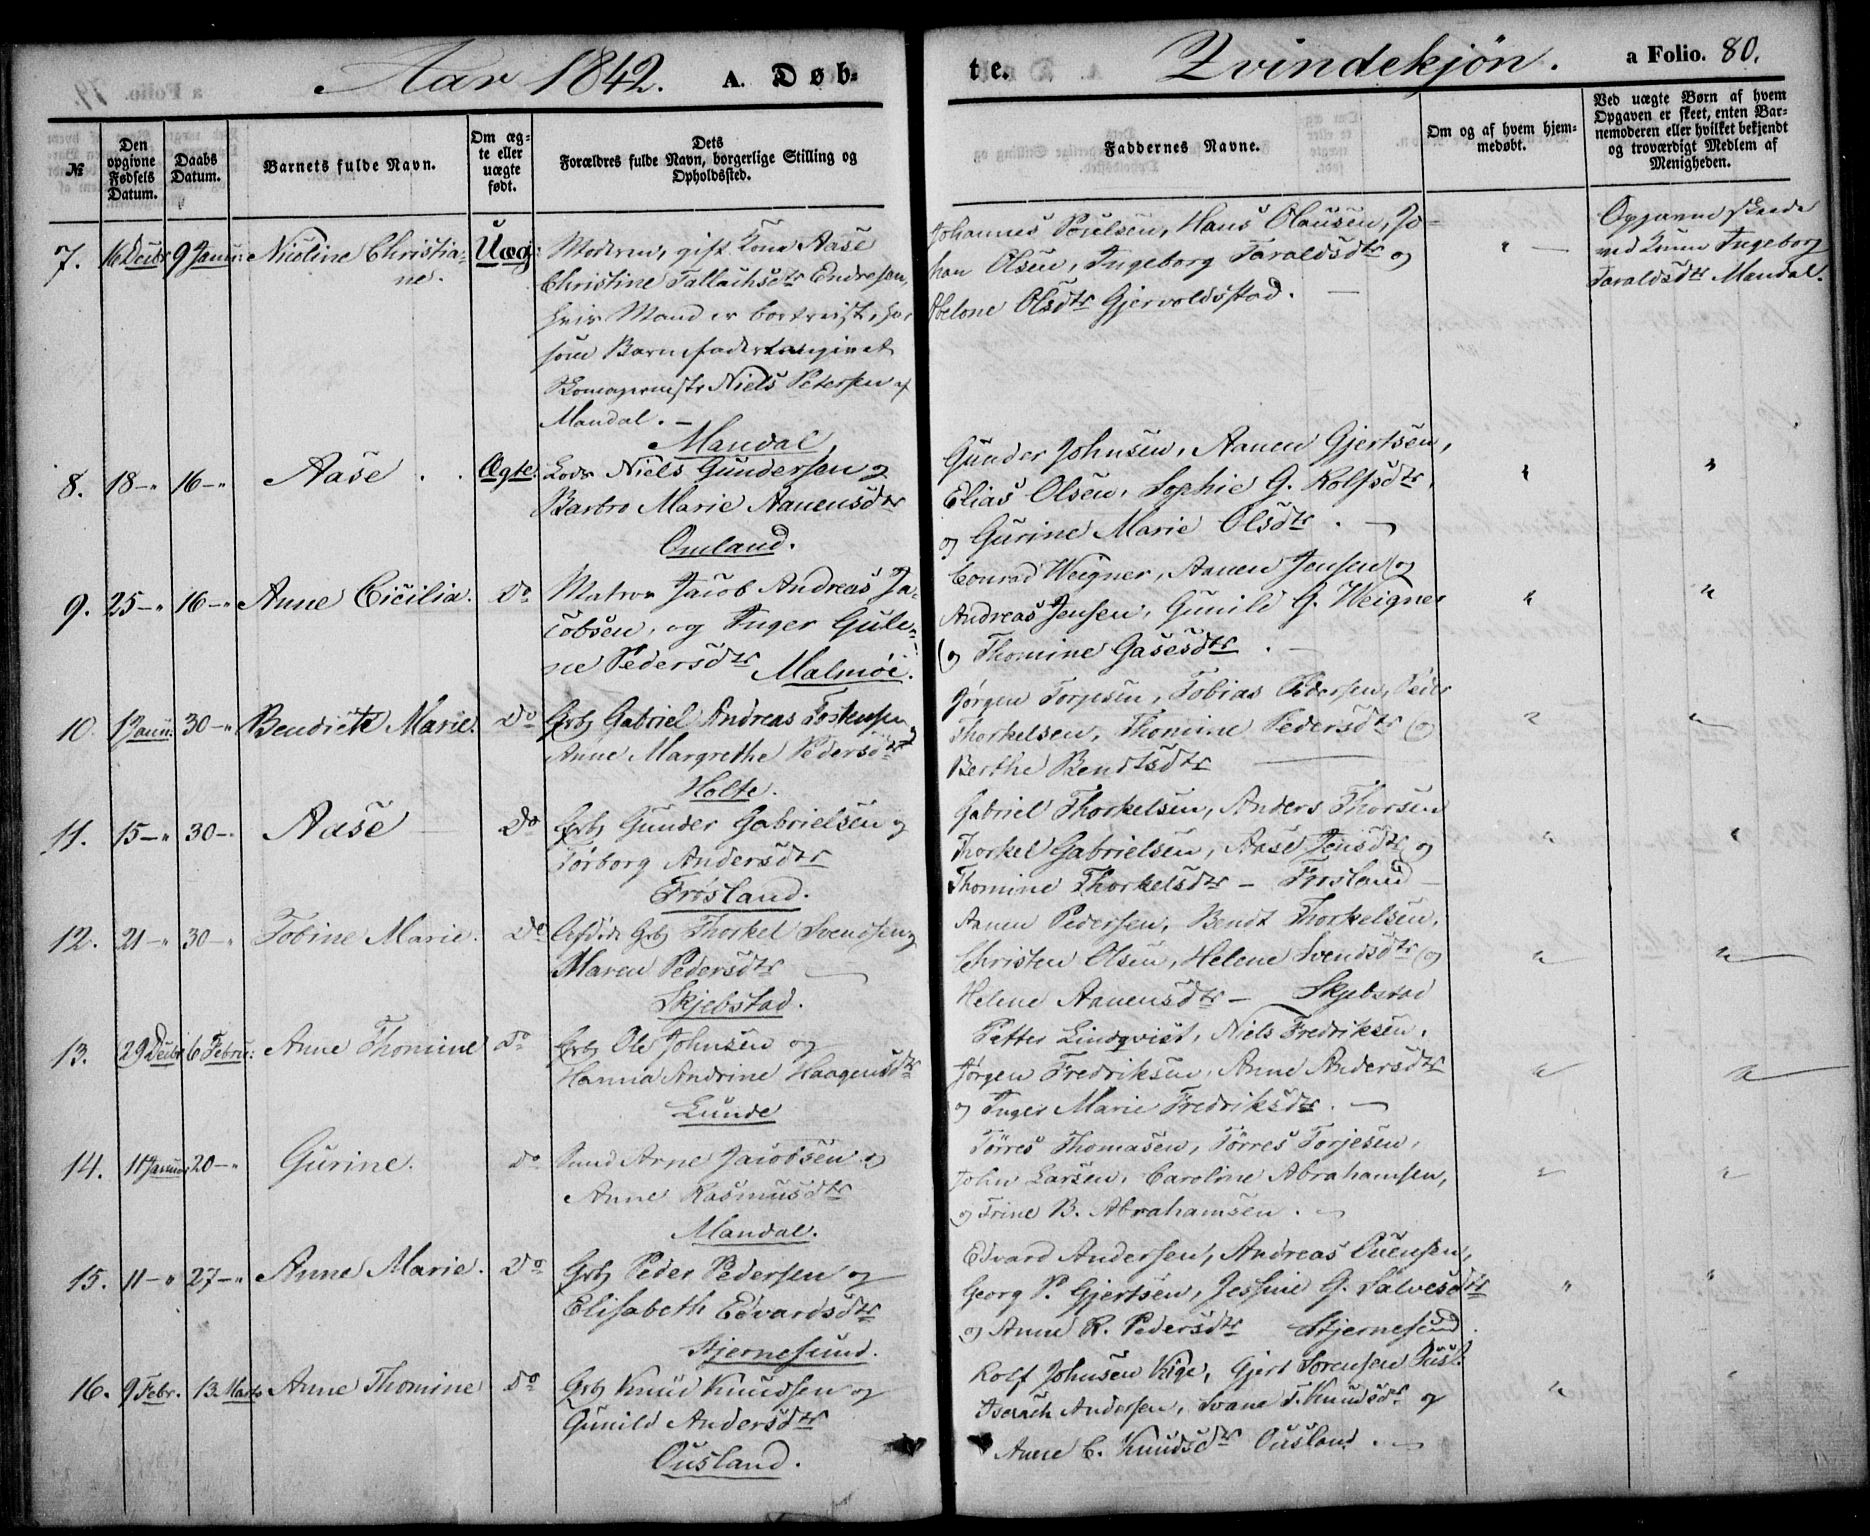 Aar 1842. A. Døb-
te. Qvindekjøn. a Folio. 80.
№
Den opgivne Fødsels Datum.
Daabs Datum.
Barnets fulde Navn.
Om ægte eller uægte født.
Dets Forældres fulde Navn, borgerlige Stilling og Opholdssted.
Faddernes Navne.
Om og af hvem hjemmedøbt.
Ved uægte Børn af hvem Opgaven er skeet, enten Barnemoderen eller hvilket bekjendt og troværdigt Medlem af Menigheden.
7. 16 Decbr 9 Janu: Nicoline Christia-
ne.
Uæg:
Moderen, gift Kone Aase
Christine Tallachsdtr Endresen,
hvis Mand er bortreist, har
som Barnefader angivet
Niels Petersen af
Mandal. –
Johannes Poulsen, Hans Olausen, Jo-
han Olsen, Ingeborg Taraldsdtr og
Olsdtr Gjervoldsstad. –
" –
Opgaven skeede
ved Konen Ingeborg
Taraldsdtr Mandal.
Mandal
8. 18 – " 16 – " Aase . . Ægte.
Lods Niels Gundersen og
Barbro Marie Aanensdtr
Gunder Johnsen, Aanen Gjertsen,
Elias Olsen, Sophie G. Rolfsdtr,
og Gurine Marie Olsdtr . –
Omland.
9. 25 – " 16 – " Anne Cicilia. Do
Matros Jacob Andreas Ja-
cobsen, og Inger Gule-
Pedersdtr Malmøe.
Conrad Weigner, Aanen Jensen og
Andreas Jensen, Gunild G. Weigner
og Thomine Gasesdtr . –
10. 1 Janu: 30 – " Bendicte Marie. Do
Grb Gabriel Andreas Tostensen og
Anne Margrethe Pedersdtr
Jørgen Torjesen, Tobias Pedersen, Peder
Thorkelsen, Thomine Pedersdtr og
Berthe Bendtsdtr
Holte.
11. 15 – " 30 – " Aase – Do
Grb Gunder Gabrielsen og
Torborg Andersdtr
Gabriel Thorkelsen, Anders Thorsen
Thorkel Gabrielsen, Aase Jensdtr og
Thomine Thorkelsdtr – Frøsland –
Frøsland.
12. 21 – " 30 – " Tobine Marie. Do
Grb Thorkel Svendsen og
Maren Pedersdtr
Aanen Pedersen, Bendt Thorkelsen,
Christen Olsen, Helene Svendsdtr og
Helene Aanensdtr – Skjebstad
Skjebstad.
13. 29 Decbr 6 Febru: Anne Thomine Do
Grb Ole Johnsen og
Hanna Andrine Haagensdtr
Petter Lindqvist, Niels Fredriksen,
Jørgen Fredriksen, Anne Andersdtr
og Inger Marie Fredriksdtr. –
Lunde
14. 11 Januar 20 – " Gurine. Do
Arne Jacobsen og
Anne Rasmusdtr
Tørres Thomasen, Tørres Torjesen,
John Larsen, Caroline Abrahamsen,
og Trine B. Abrahamsen. –
Mandal.
15. 11 – " 27 – " Anne Marie. Do
Grb Peder Pedersen og
Elisabeth Edvardsdtr
Edvard Andersen, Andreas Ouensen,
Georg P. Gjertsen, Jessine G. Salvesdtr
og Anne R. Pedersdtr Stjernesund.
Stjernesund.
16. 9 Febr. 13. Marts Anne Thomine Do
Grb Knud Knudsen og
Gunild Andersdtr
Rolf Johnsen Vige, Gjert Sørensen
Andersen, Svane T. Knudsdtr og
Anne C. Knudsdtr Ousland. –
Ousland.